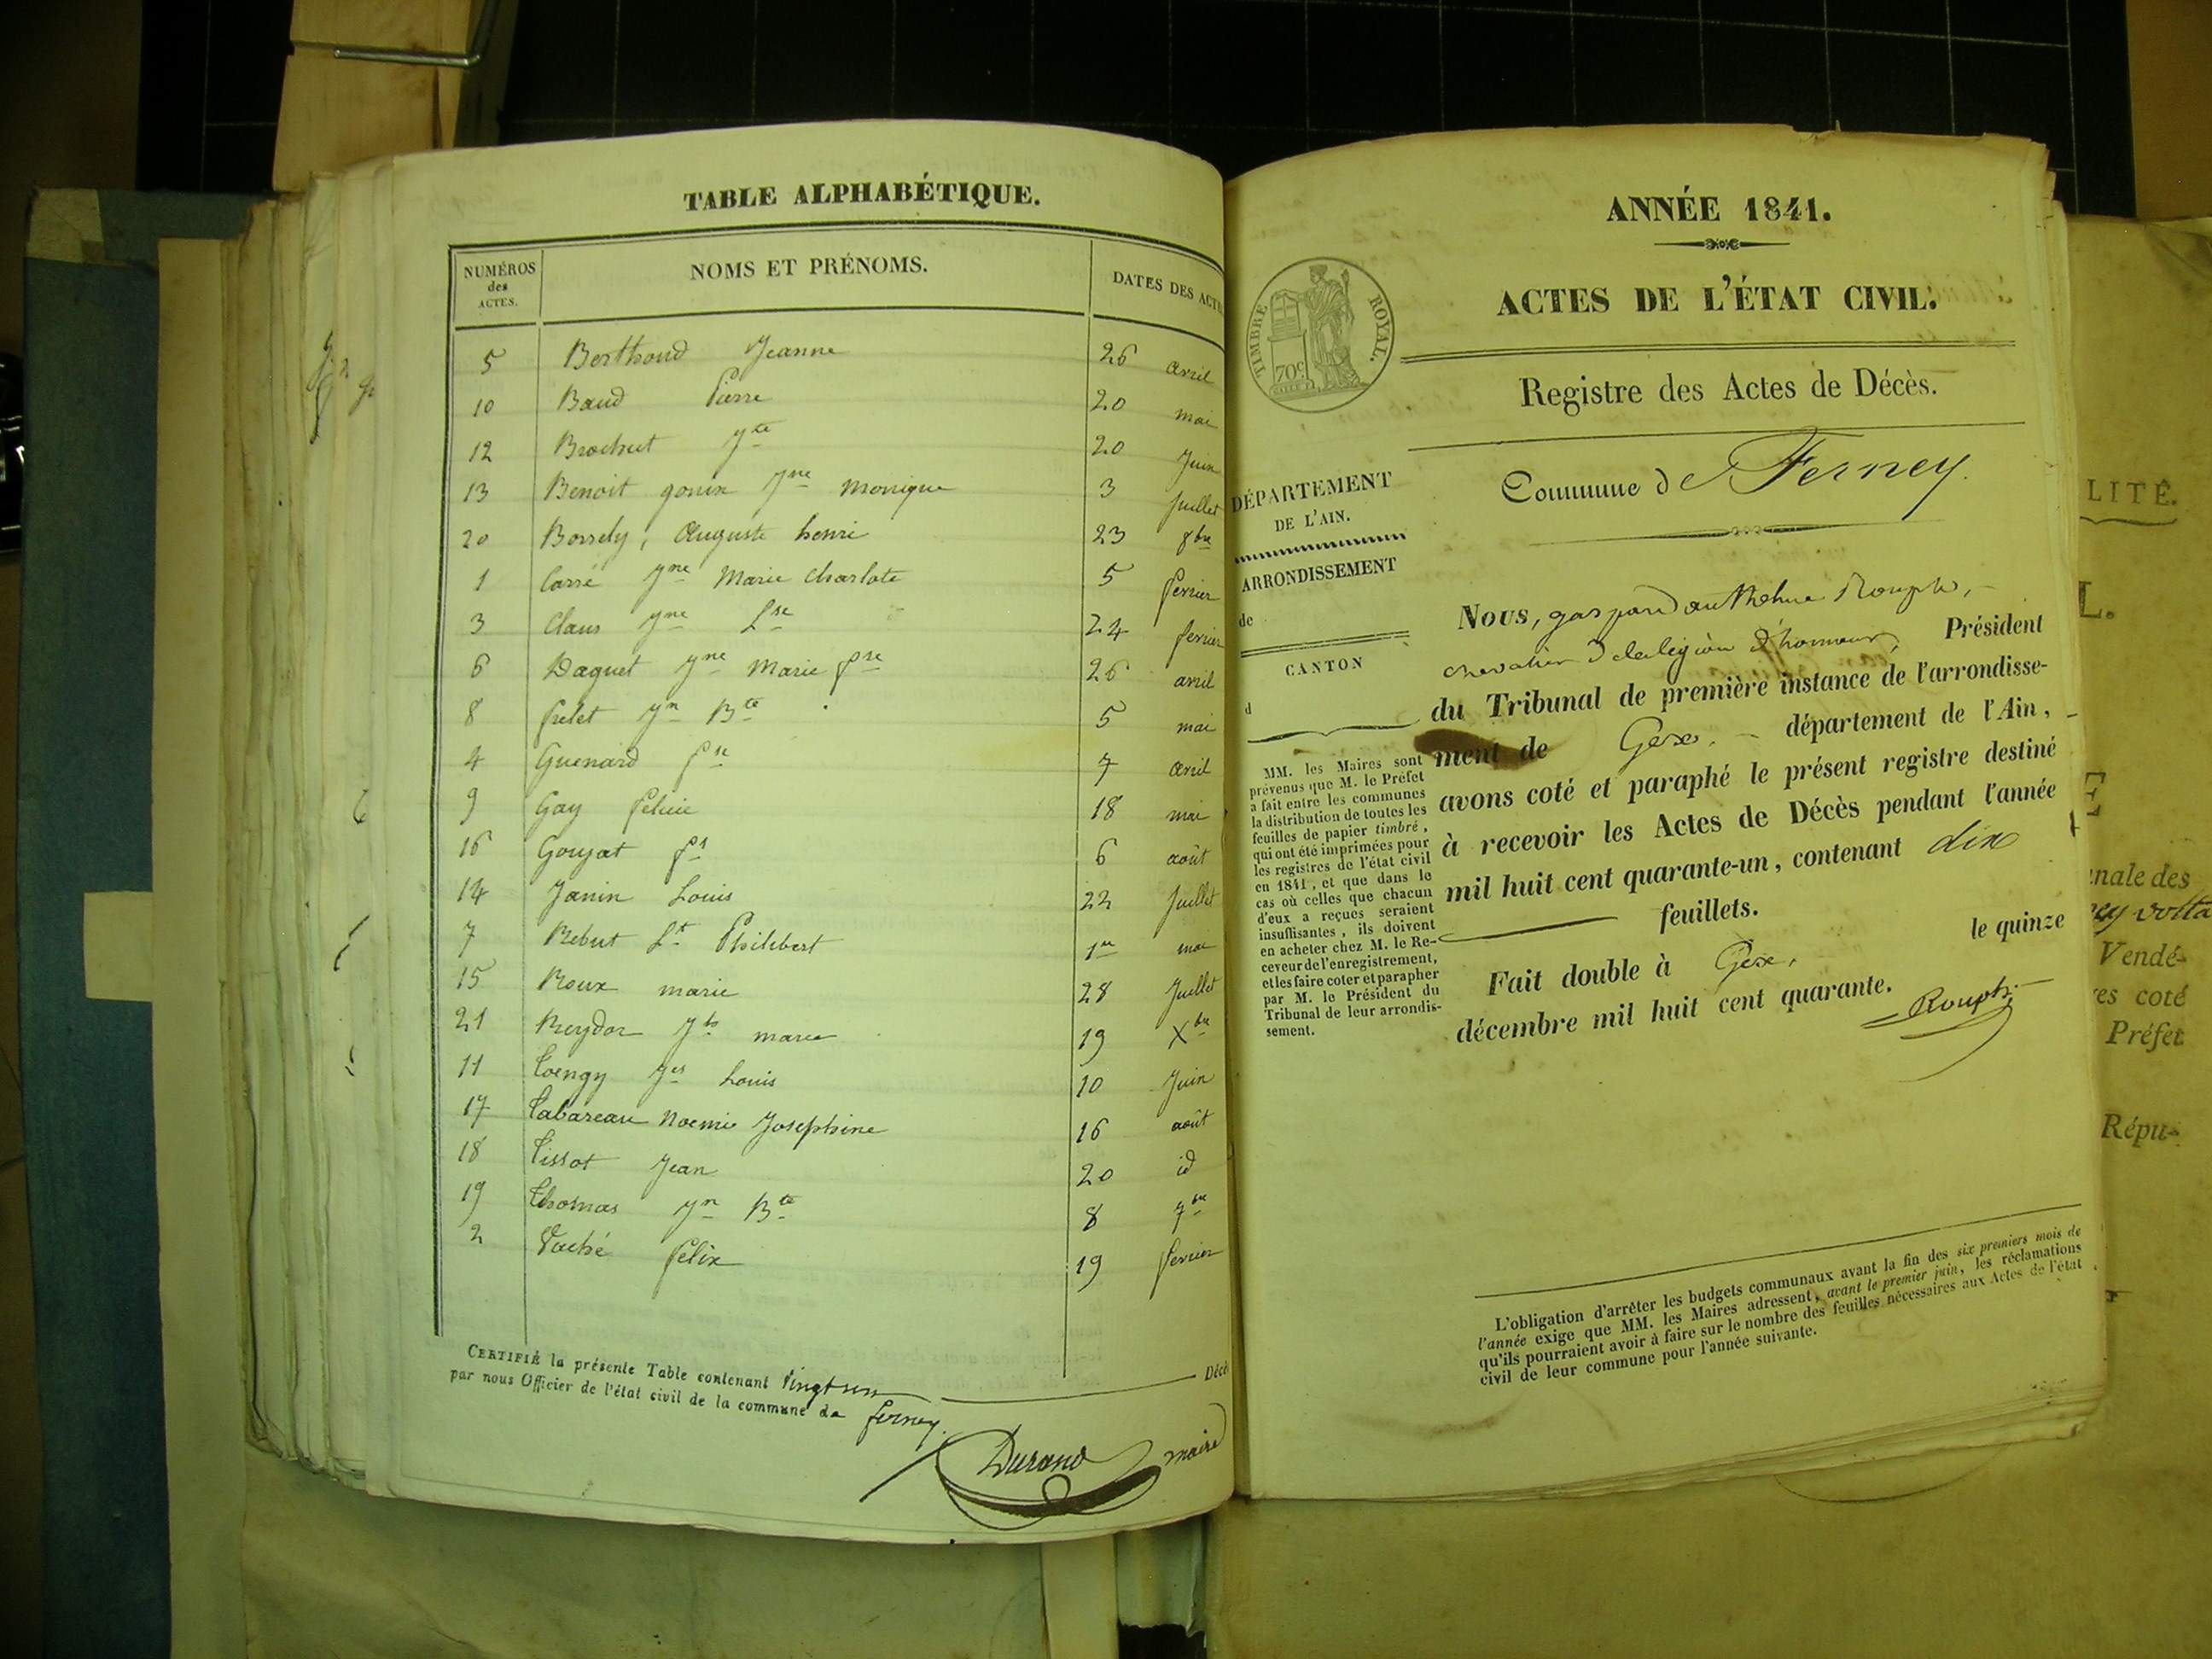 TABLE ALPHABÉTIQUE.
NUMÉROS des ACTES. NOMS ET PRÉNOMS. DATES DES ACT
5 Berthoud Jeanne 26 avril
10 Baud Pierre 20 mai
12 Brochut Jte 20 Juin
13 Benoit gonin Jne Monique 3 Juillet
20 Borrely, Auguste henri 23 8bre
1 Carré Jne Marie Charlote 5 fevrier
3 Claus Jne Lse 24 fevrier
6 Daguet Jne Marie fse 26 avril
8 frelet Jn Bte 5 mai
4 Guenard fse 7 avril
9 Gay felicie 18 mai
16 Goujat fs 6 août
14 Janin Louis 22 Juillet
7 Rebut Lt Philibert 1er mai
15 Roux marie 28 Juillet
21 Reydor Jh marie 19 Xbre
11 Toengy Jes Louis 10 Juin
17 Tabareau Noemie Josephine 16 août
18 Tissot Jean 20 id
19 Thomas Jn Bte 8 7bre
2 Vaché felix 19 fevrier
CERTIFIÉ la présente Table contenant Vingt un Décè
par nous Officier de l'état civil de la commune de ferney.
Durand maire
ANNÉE 1841.
TIMBRE ROYAL.
70c
ACTES DE L'ÉTAT CIVIL.
Registre des Actes de Décès.
Commune de Ferney.
DÉPARTEMENT
DE L'AIN.
ARRONDISSEMENT
de
CANTON
d
MM. les Maires sont
prévenus que M. le Préfet
a fait entre les communes
la distribution de toutes les
feuilles de papier timbré,
qui ont été imprimées pour
les registres de l'état civil
en 1841, et que dans le
cas où celles que chacun
d'eux a reçues seraient
insuffisantes, ils doivent
en acheter chez M. le Re-
ceveur de l'enregistrement,
et les faire coter et parapher
par M. le Président du
Tribunal de leur arrondis-
sement.
Nous, gaspard anthelme Rouph,
chevalier de la légion d'honneur, Président
du Tribunal de première instance de l'arrondisse-
ment de Gex. département de l'Ain,
avons coté et paraphé le présent registre destiné
à recevoir les Actes de Décès pendant l'année
mil huit cent quarante-un, contenant dix
feuillets.
Fait double à Gex, le quinze
décembre mil huit cent quarante.
Rouph
L'obligation d'arrêter les budgets communaux avant la fin des six premiers mois de
l'année exige que MM. les Maires adressent, avant le premier juin, les réclamations
qu'ils pourraient avoir à faire sur le nombre des feuilles nécessaires aux Actes de l'état
civil de leur commune pour l'année suivante.
LITÉ.
L.
nale des
ey volta
Vendé-
es coté
Préfet
Répu-